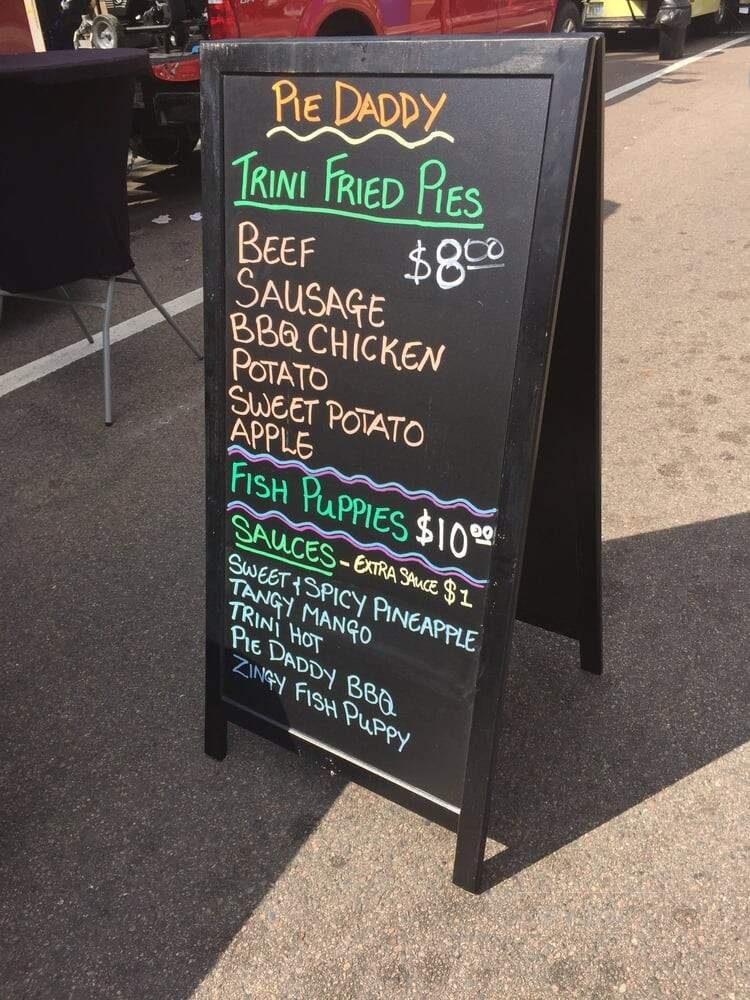 PIE DADDY
TRINI FRIED PIES
BEEF $8.00
SAUSAGE
BBQ CHICKEN
POTATO
SWEET POTATO
APPLE
FISH PUPPIES $10.00
SAUCES - EXTRA SAUCE $1
SWEET & SPICY PINEAPPLE
TANGY MANGO
TRINI HOT
PIE DADDY BBQ
ZINGY FISH PUPPY